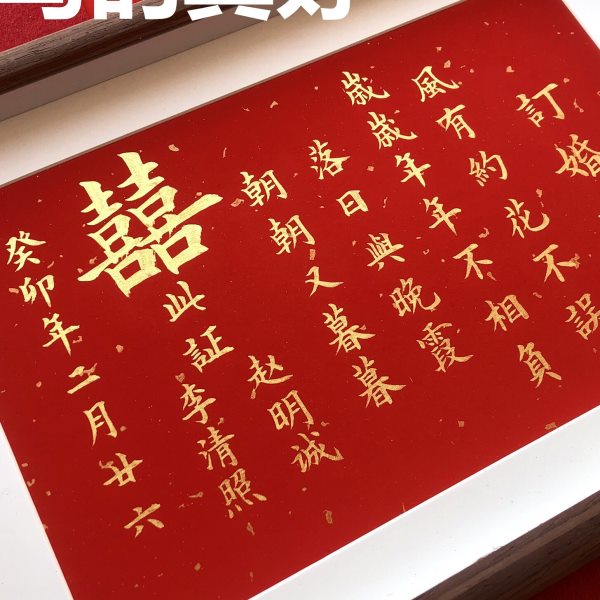 訂婚
風有約花不誤
歲歲年年不相負
落日與晚霞
朝朝又暮暮
赵明誠
囍
此証李清照
癸卯年二月廿六